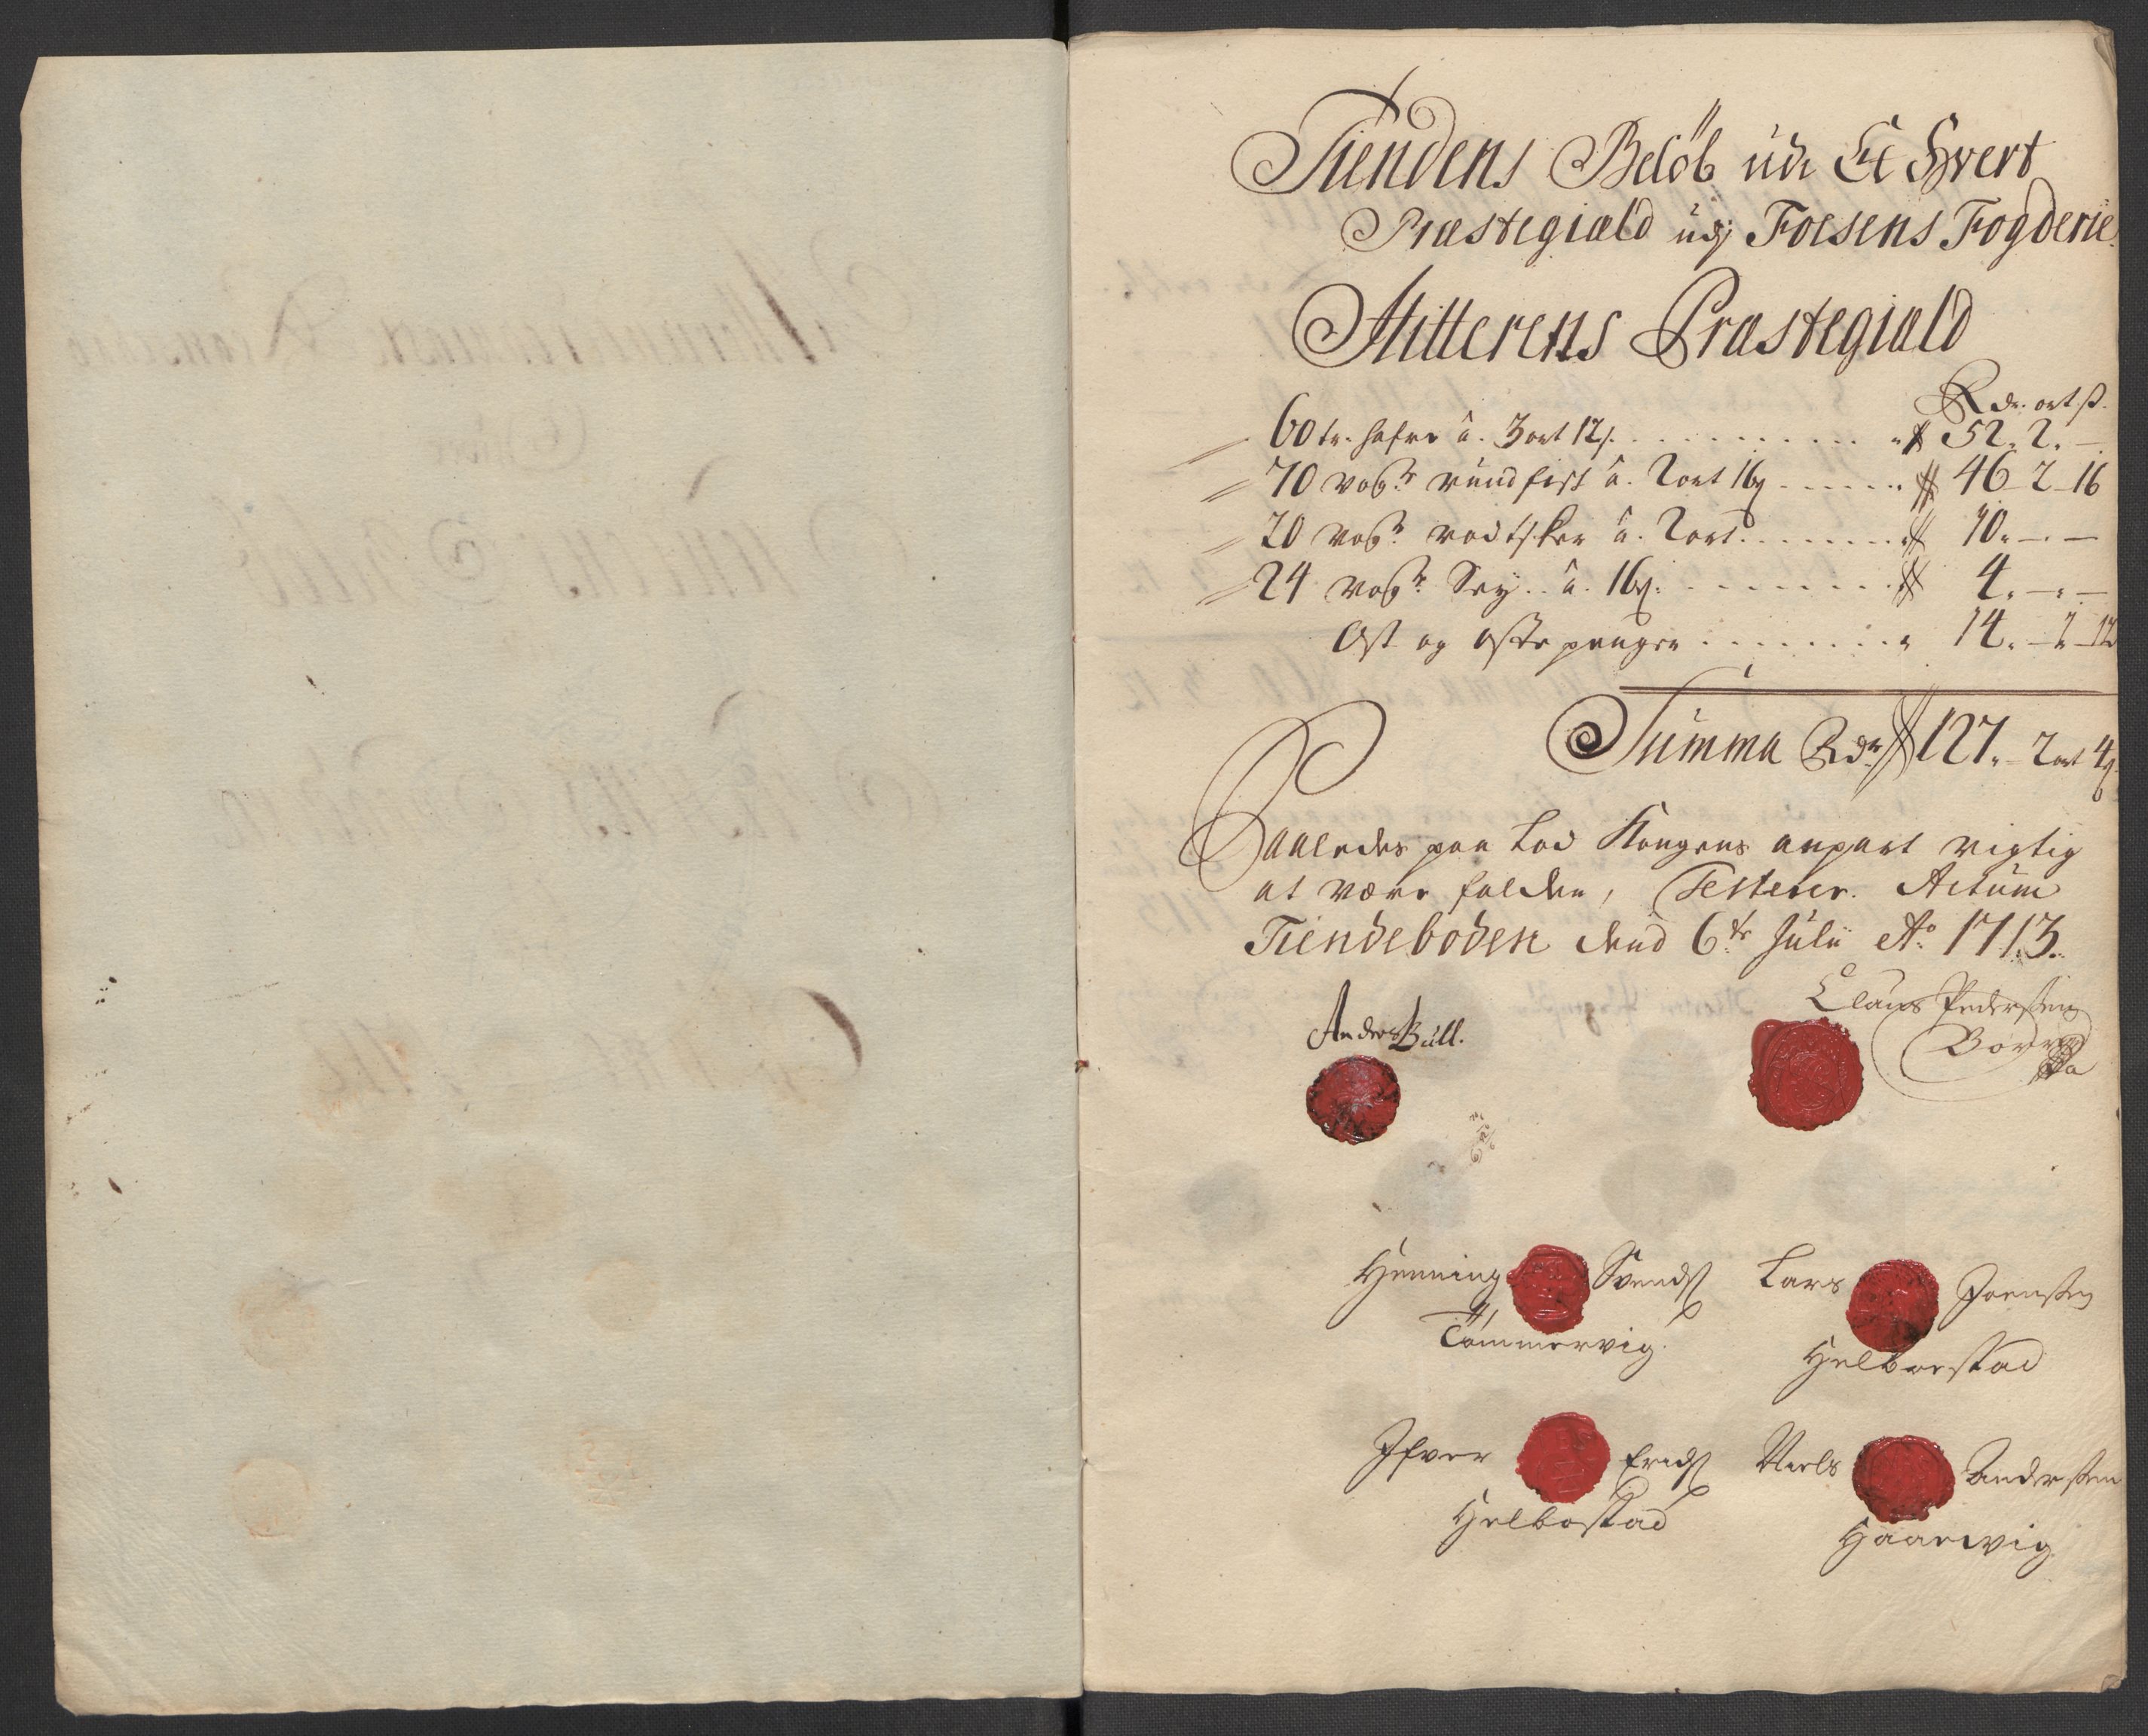 Tiendens Beløb udi Et Hvert
Præstegiæld udj Foesens Fogderie
Hitterens Præstegiæld
Rdr. ort. ß.
60 tr. hafre a. 3 ort 12 ß. 52. 2. –
70 vog:r rundfisk a. 2 ort 16 ß 46 - 2 - 16
20 vog:r rodtsker a. 2 ort. 10. – . –
24 vog:r Sey. a. 16 ß. 4. – . –
Ost og oste penger 14. – 1 – 12
Summa Rdr 127. – 2 ort 4 ß
Saaledes paa Lod Kongens anpart rigtig
at være falden, Testerer. Actum
Tiendeboden dend 6te Julii Ao 1713.
Anders Büll.
Claus Pedersen
Henning Svends
Tömmervig
Lars Joensen
Helboestad
Ifver Erichs
Helbostad
Niels Andersen
Haarvig